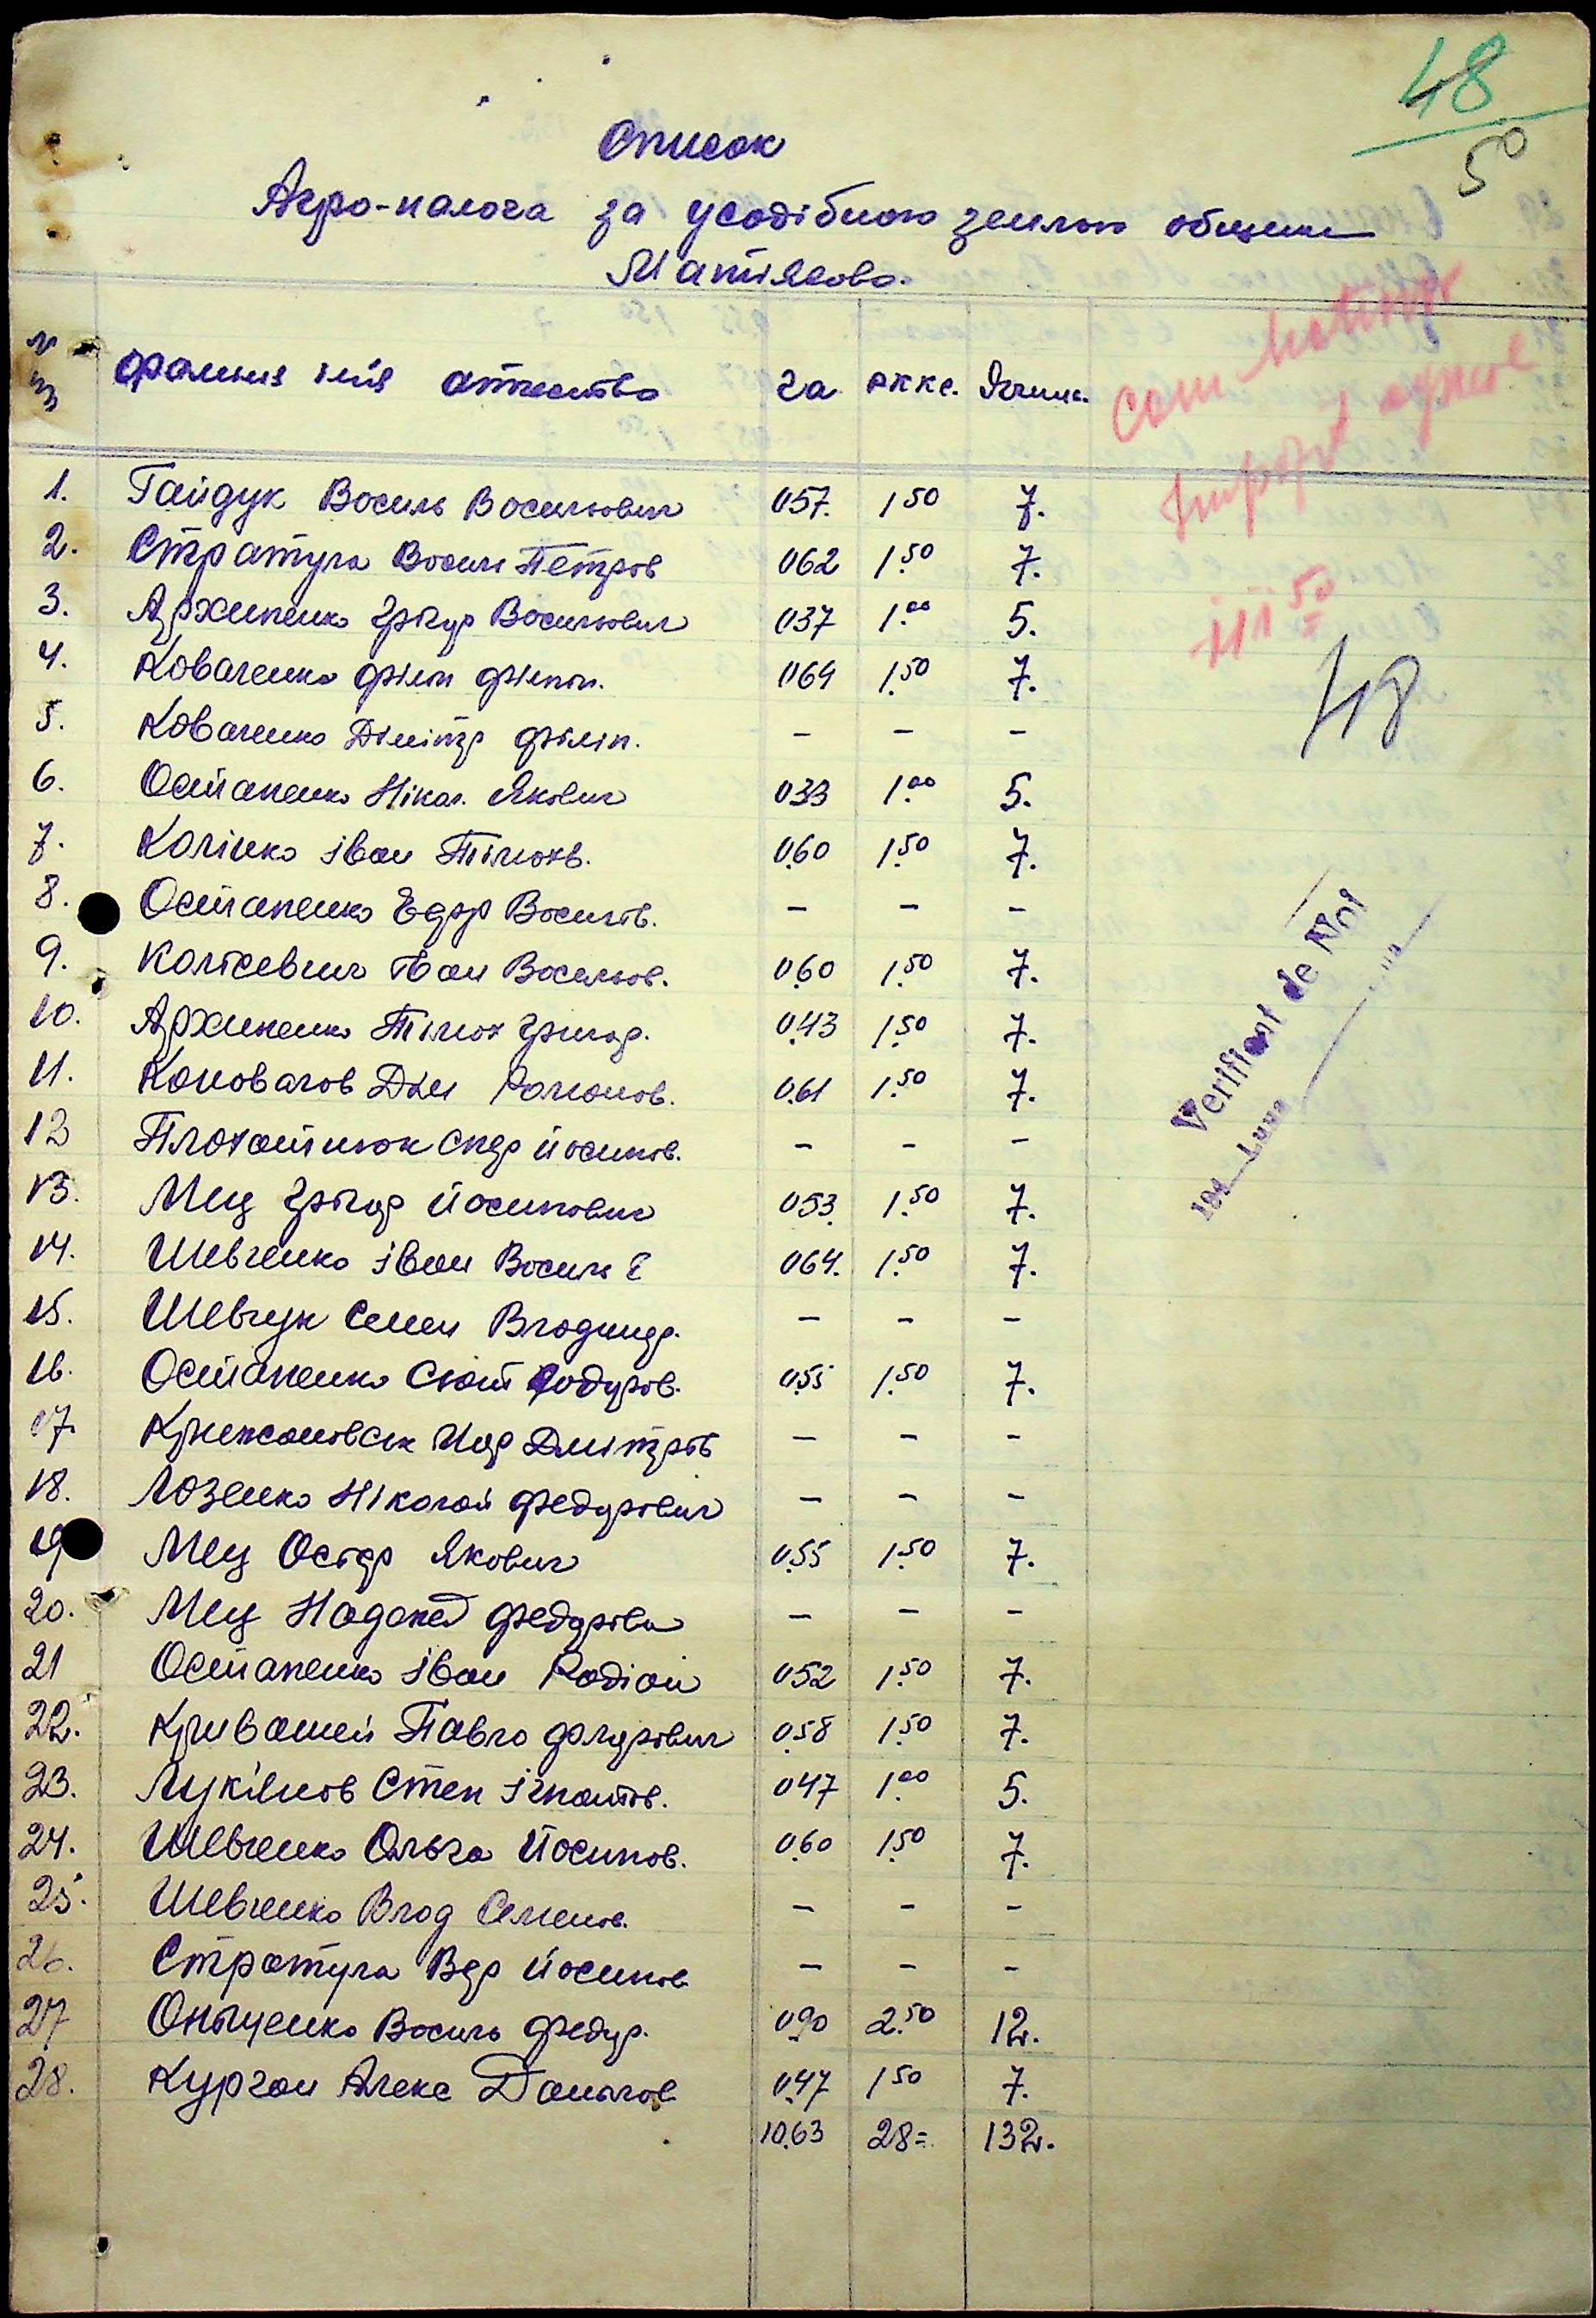 48
50
Список
Агро-налога за усадібною землою общини
Матіясова.
№ фамилия імя атчество га РККС. Ячмин.
Com Matiasov
Import agricol
111 50
48
1. Гайдук Восиль Восильович 057. 1 50 7.
2. Стратула Восиль Петров 062 1.50 7.
3. Архипенко Грігор Восильович 037 1.00 5.
4. Коваленко філіп філіпп. 064 1.50 7.
5. Коваленко Дімітр філіп. – – –
6. Остапенко Нікол. Якович 033 1.00 5.
7. Калінко іван Тімохв. 060 1.50 7.
8. Остапенко Едор Восильв. – – –
9. Колісевич іван Восильов. 060 1.50 7.
10. Архипенко Тімох Григор. 043 1.50 7.
11. Коновалов Дім Романов. 061 1.50 7.
12 Плохотнюк Сидр йосипов. – – –
13. Мец Грігор йосипович 053. 1.50 7.
14. Шевченко іван Восиль Е 064. 1.50 7.
15. Шевчук Семен Владимир. – – –
16. Остапенко Сют Фодуров. 055 1.50 7.
17. Крижановськ Дмітрів – – –
18. Лозенко Ніколай федурович – – –
19 Мец Осідр Якович 0.55 1.50 7.
20. Мец Надежд федурівн – – –
21 Остапенко іван Родіон 052 1.50 7.
22. Кривошей Павло флурович 0.58 1.50 7.
23. Лукінов Степ ігнатов. 047 1.00 5.
24. Шевченко Ольга йосипов. 0.60 1.50 7.
25. Шевченко Влад Семенов. – – –
26. Стратула Вдр йосипов – – –
27 Онышенко Восиль федур. 0.90 2.50 12.
28. Курган Алекс Данилов 0.47 1 50 7.
10.63 28=. 132.
Verificat de Not
194 Luna